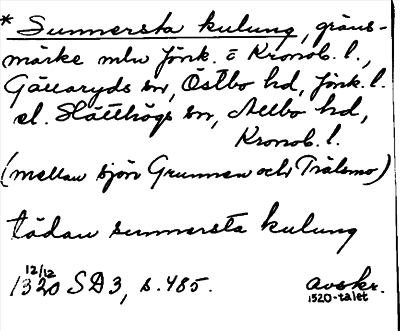 * Sunnersta kulung, gräns-
märke mln Jönk. o Kronob. l.,
Gällaryds sn, Östbo hd, Jönk. l.
el. Slätthögs sn, Allbo hd,
Kronob. l.
(mellan sjön Grunnen och Trälsmo)
tädan sunnersta kulung
12/12
1320 SD 3, s. 485. avskr.
1520-talet